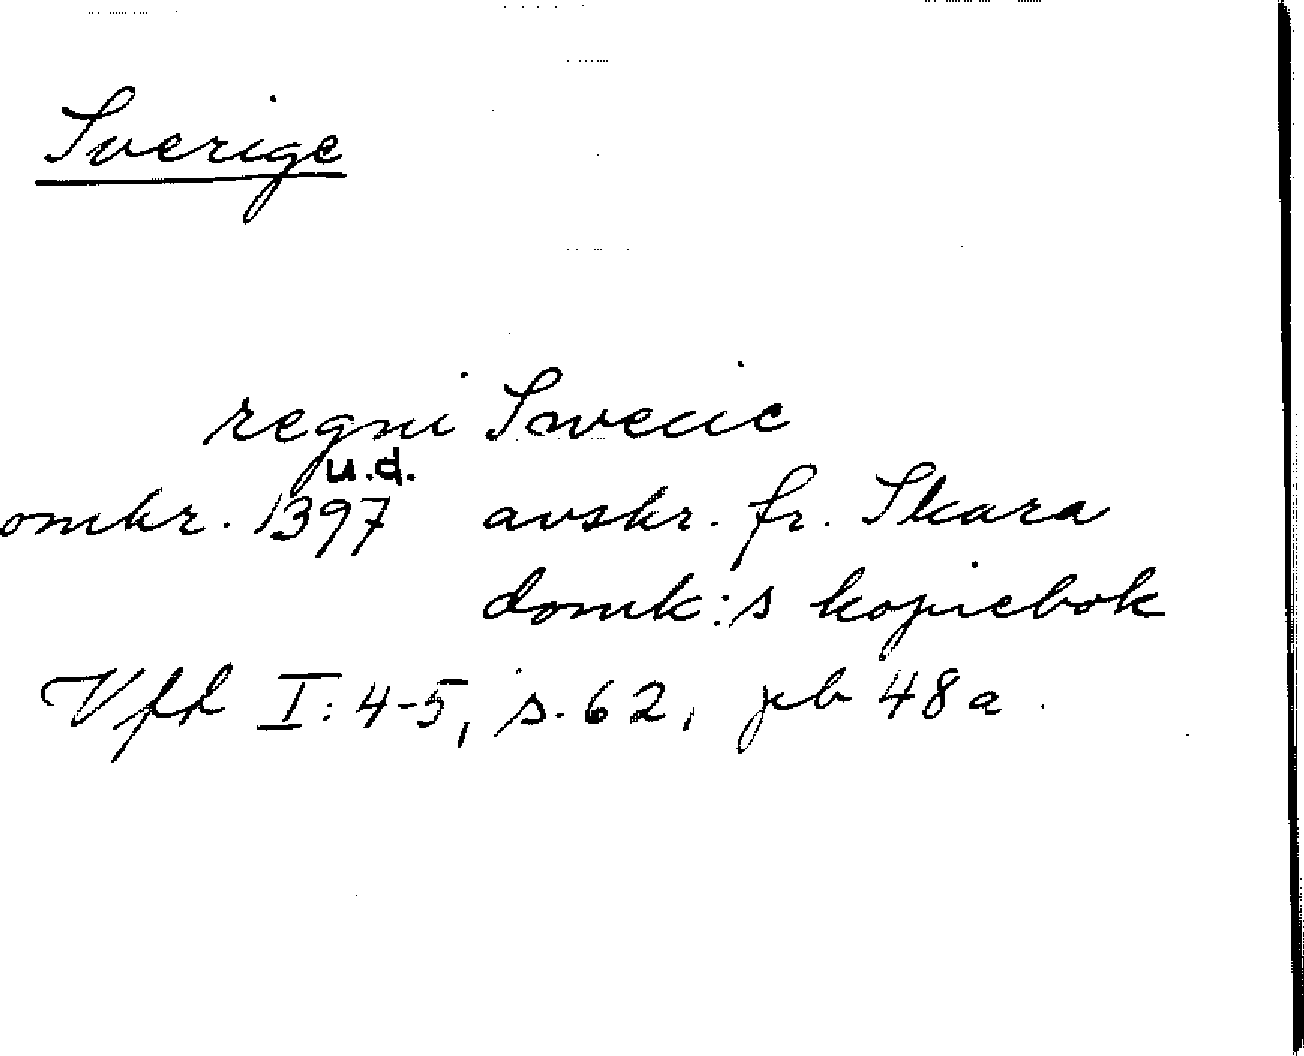 Sverige
regni Swecie
u.d.
omkr. 1397 avskr. fr. Skara
domk:s kopiebok
Vfft I:4-5, s. 62, pb 48a.